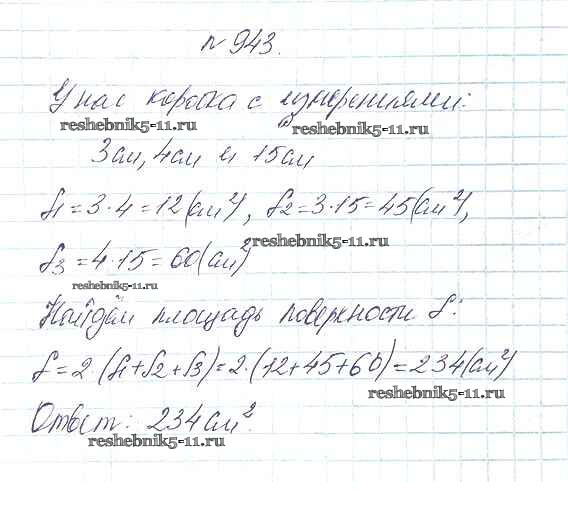 № 943.
У нас коробка с измерениями:
reshebnik5-11.ru reshebnik5-11.ru
3см, 4см и 15см
S1 = 3 · 4 = 12 (см²), S2 = 3 · 15 = 45 (см²),
reshebnik5-11.ru
S3 = 4 · 15 = 60 (см²)
reshebnik5-11.ru
Найдём площадь поверхности S:
S = 2 (S1 + S2 + S3) = 2 · (12 + 45 + 60) = 234 (см²)
reshebnik5-11.ru
Ответ: 234 см².
reshebnik5-11.ru